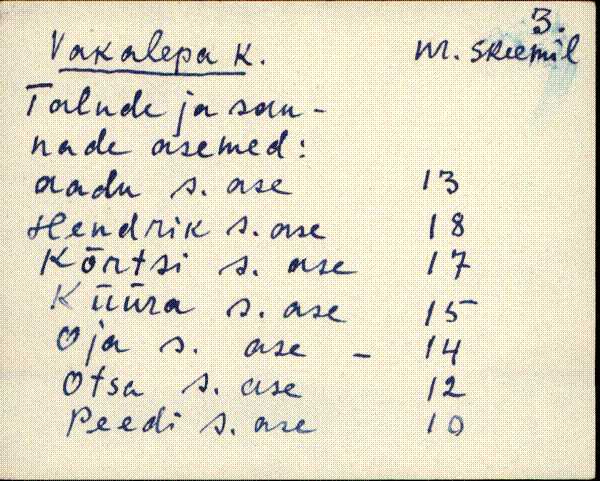 3.
Vakalepa k. nr. skeemil
Talude ja sau-
nade asemed:
aadu s. ase 13
Hendrik s. ase 18
Kõrtsi s. ase 17
Küüra s. ase 15
Oja s. ase – 14
Otsa s. ase 12
Peedi s. ase 10